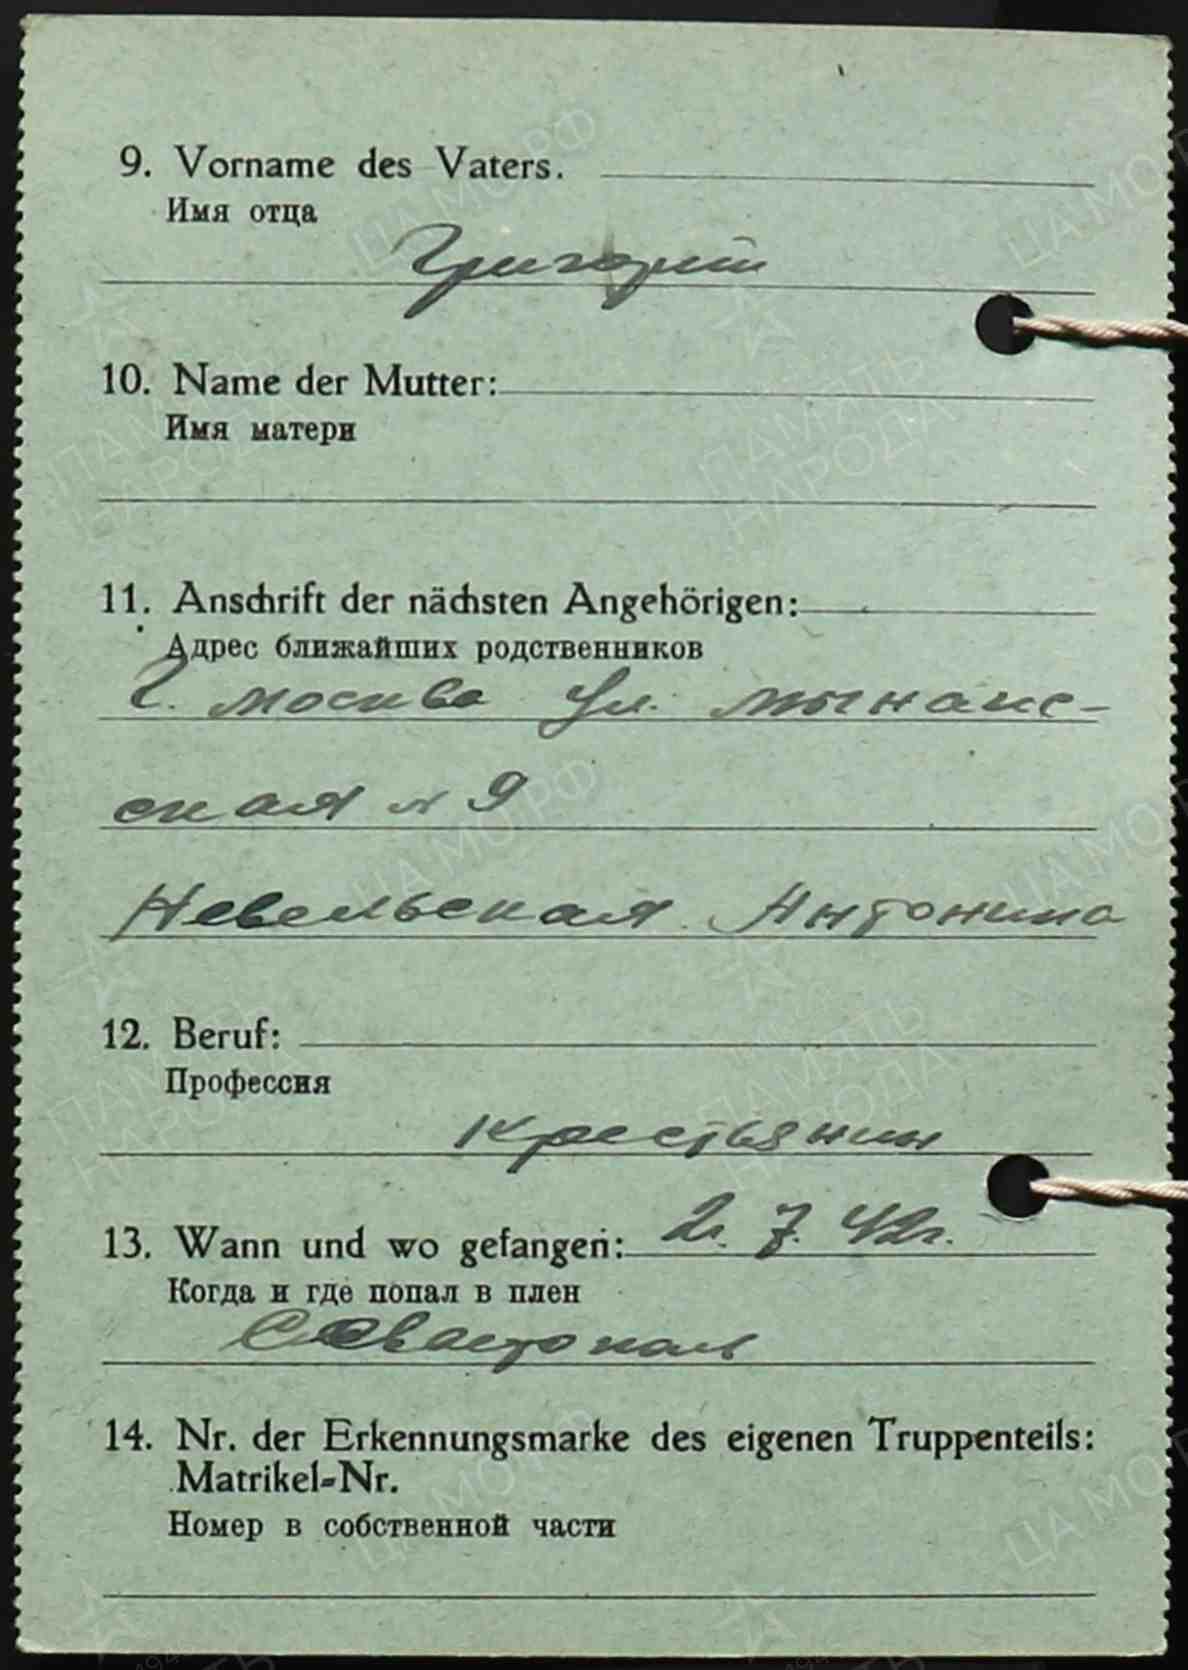 9. Vorname des Vaters.
Имя отца
Григорий
10. Name der Mutter:
Имя матери
11. Anschrift der nächsten Angehörigen:
Адрес ближайших родственников
г. москва ул.
ская № 9
Невельская Антонина
12. Beruf:
Профессия
крестьянин
13. Wann und wo gefangen: 2. 7. 42г.
Когда и где попал в плен
Севастополь
14. Nr. der Erkennungsmarke des eigenen Truppenteils:
Matrikel-Nr.
Номер в собственной части
ЦА МО РФ
ПАМЯТЬ
НАРОДА